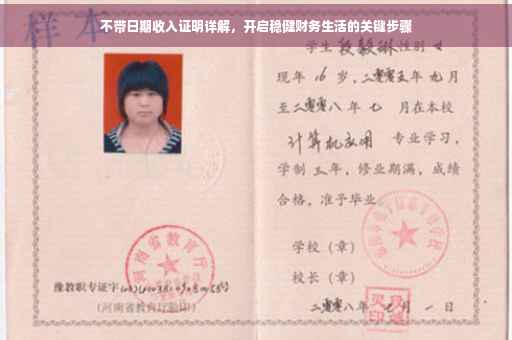 样本
不带日期收入证明详解，开启稳健财务生活的关键步骤
学生段毅琳性别女
现年16岁，二零零五年九月
至二零零八年七月在本校
计算机应用专业学习，
学制三年，修业期满，成绩
合格，准予毕业。
学校（章）
校长（章）
二零零八年七月一日
河南省教育厅
豫教职专证字
(河南省教育厅验印)